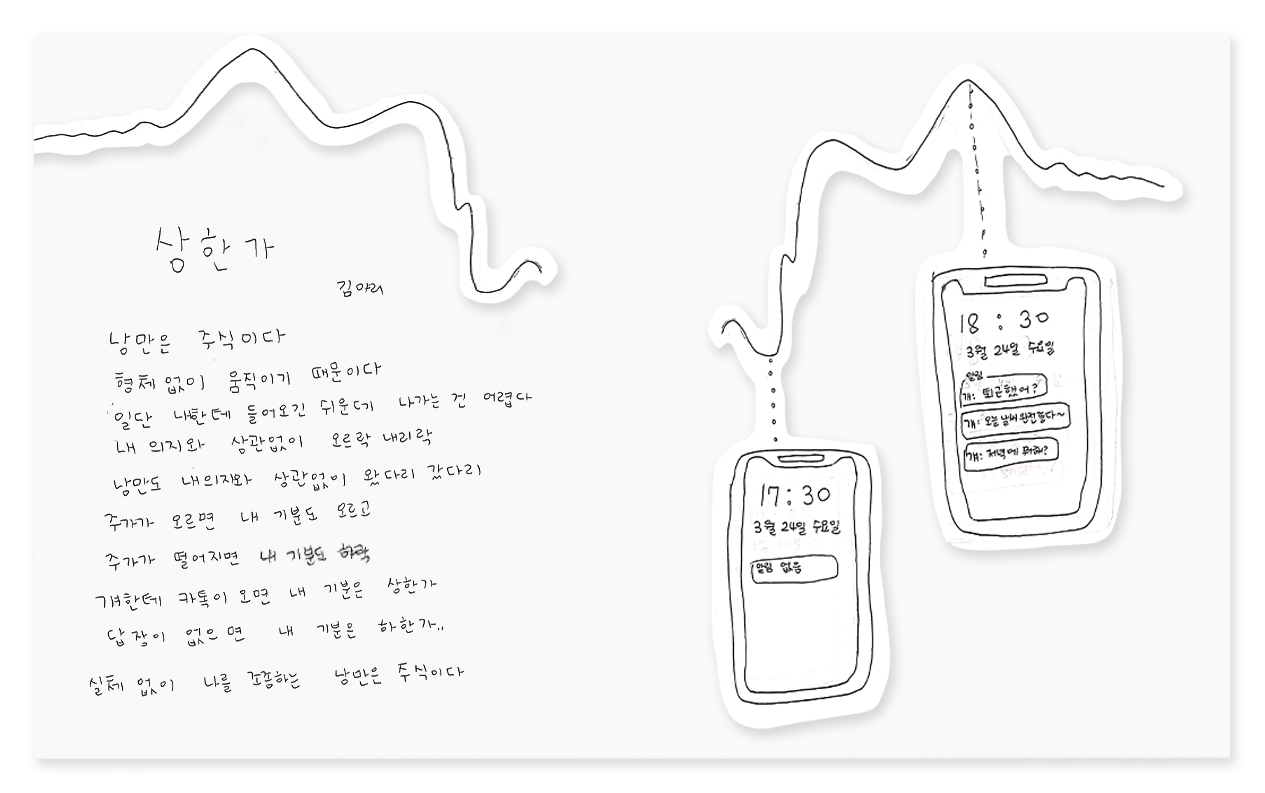 상한가
김야리
낭만은 주식이다
형체 없이 움직이기 때문이다
일단 나한테 들어오긴 쉬운데 나가는 건 어렵다
내 의지와 상관없이 오르락 내리락
낭만도 내의지와 상관없이 왔다리 갔다리
주가가 오르면 내 기분도 오르고
주가가 떨어지면 내 기분도 하락
걔한테 카톡이 오면 내 기분은 상한가
답장이 없으면 내 기분은 하한가..
실체 없이 나를 조종하는 낭만은 주식이다
17:30
3월 24일 수요일
알림 없음
18:30
3월 24일 수요일
알림
걔: 퇴근했어?
걔: 오늘 날씨 완전 좋다~
걔: 저녁에 뭐해?